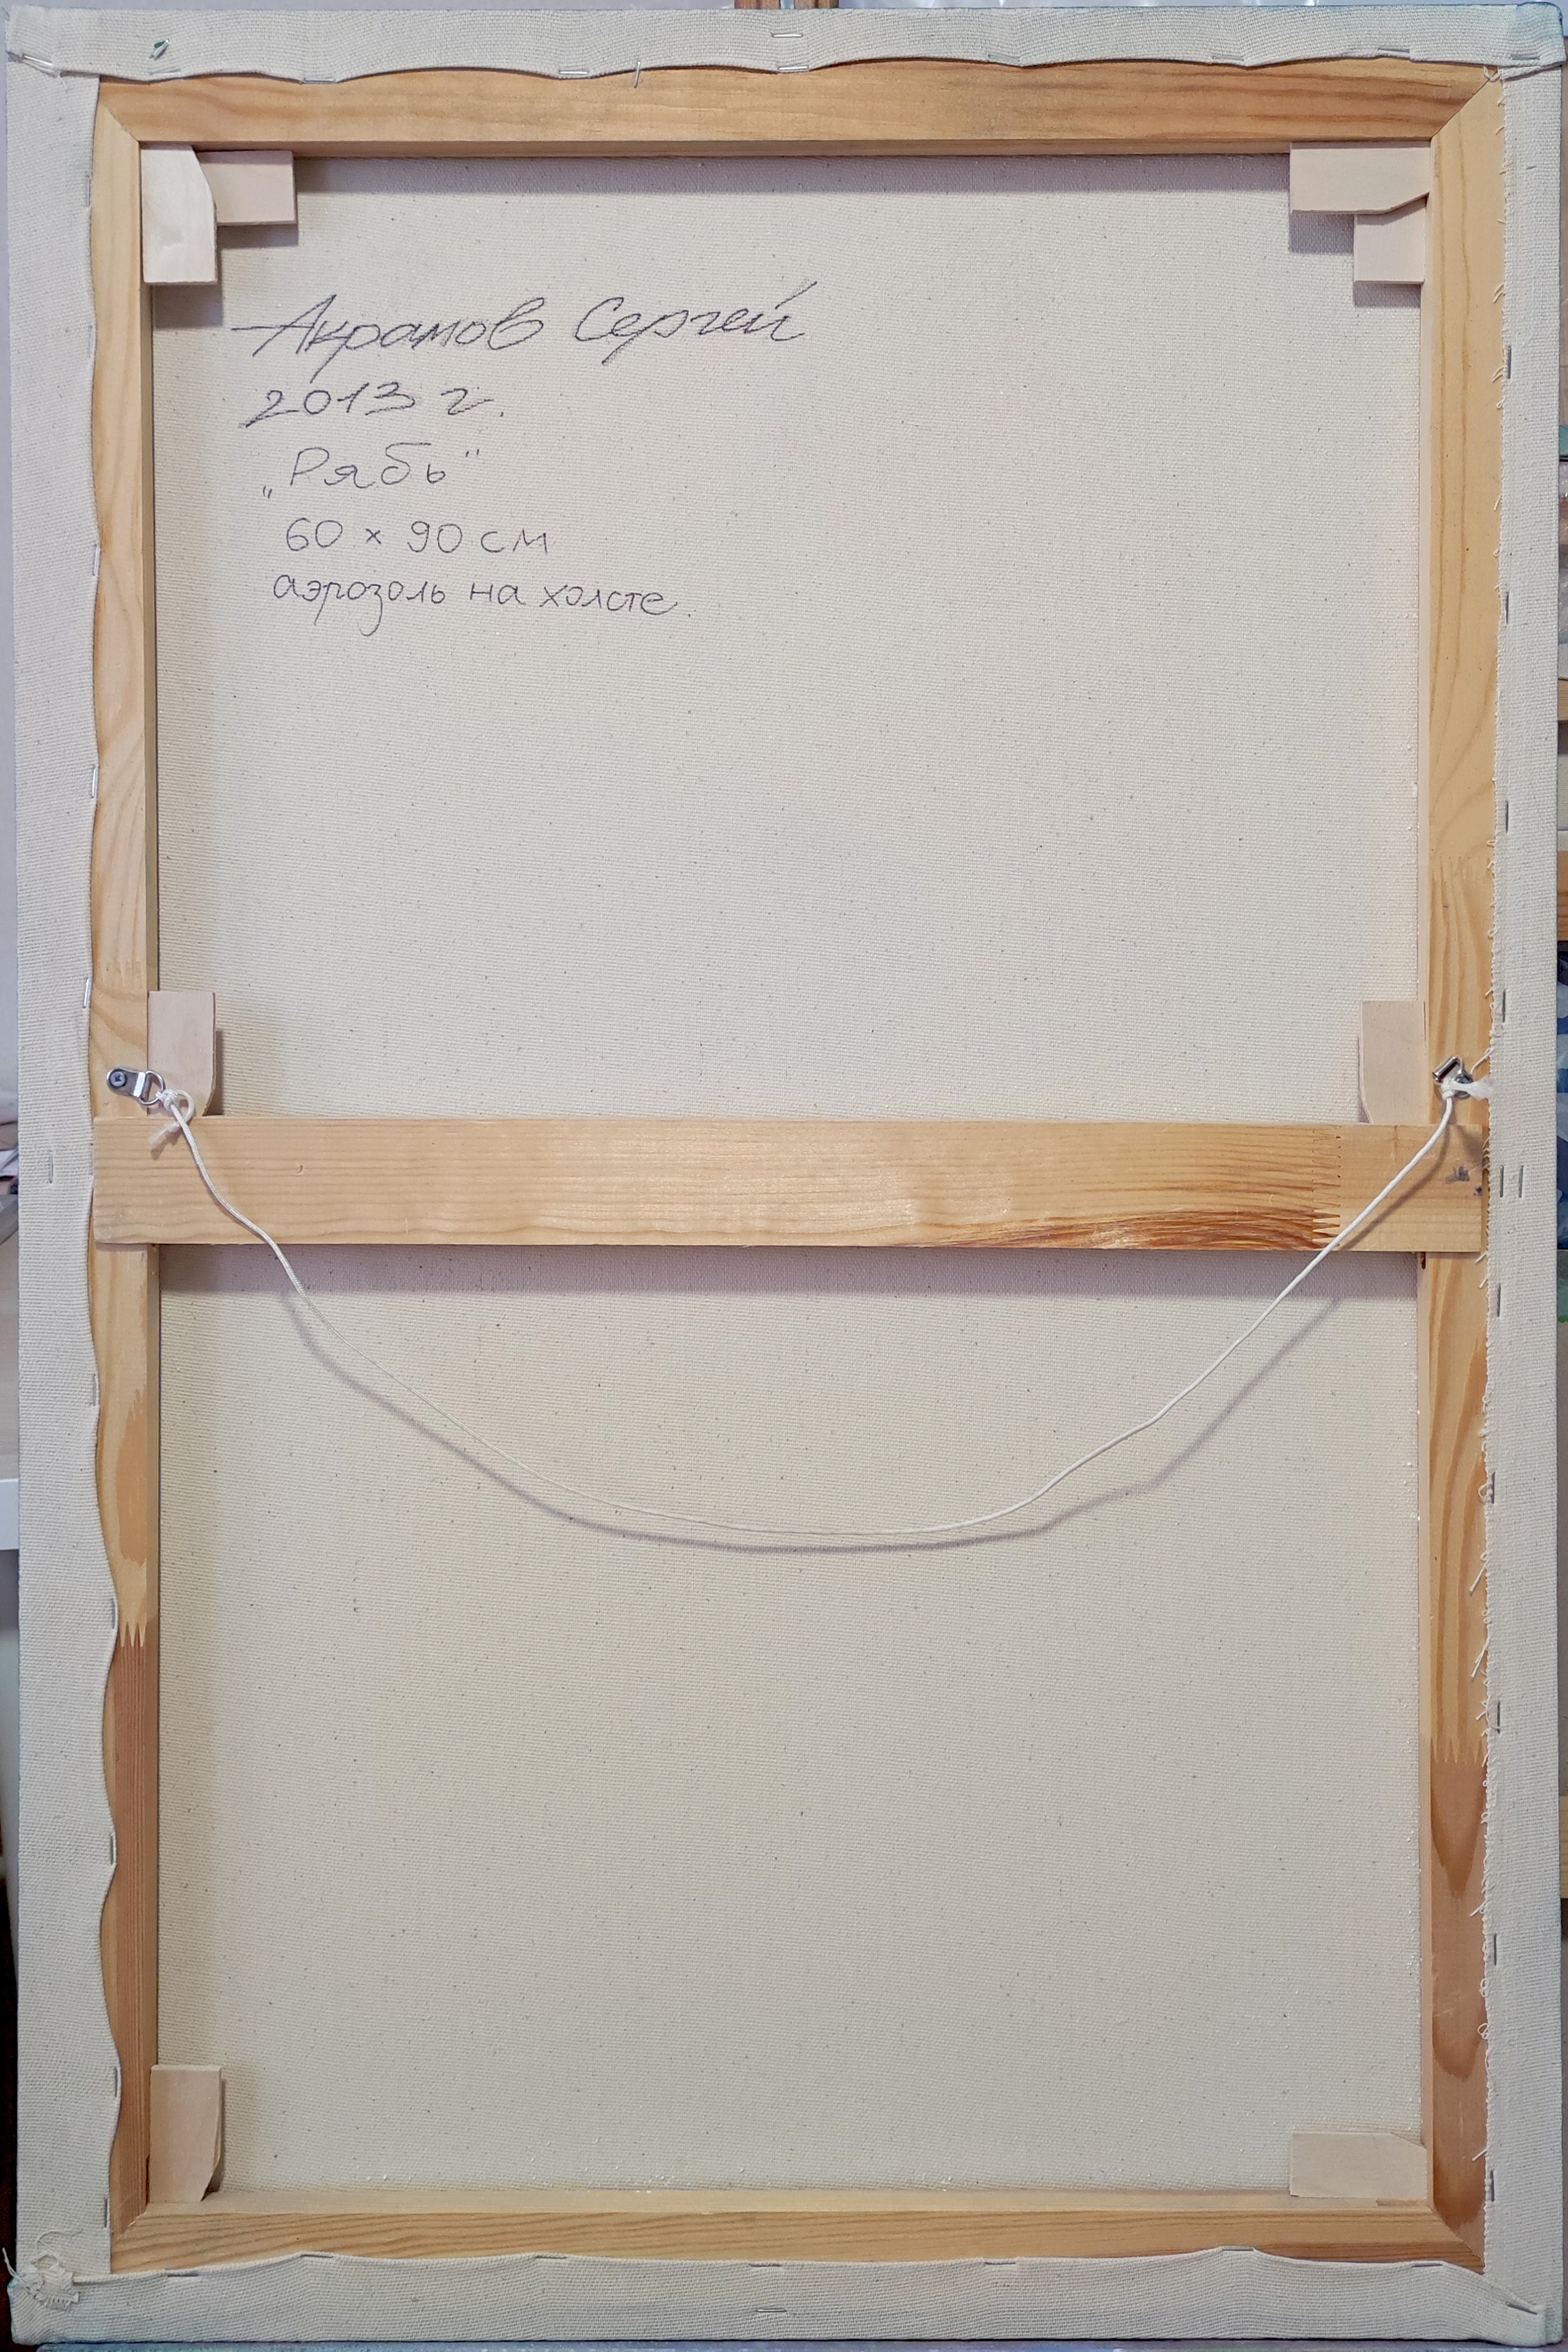 Акрамов Сергей
2013 г.
„Рябь“
60 x 90 см
аэрозоль на холсте.